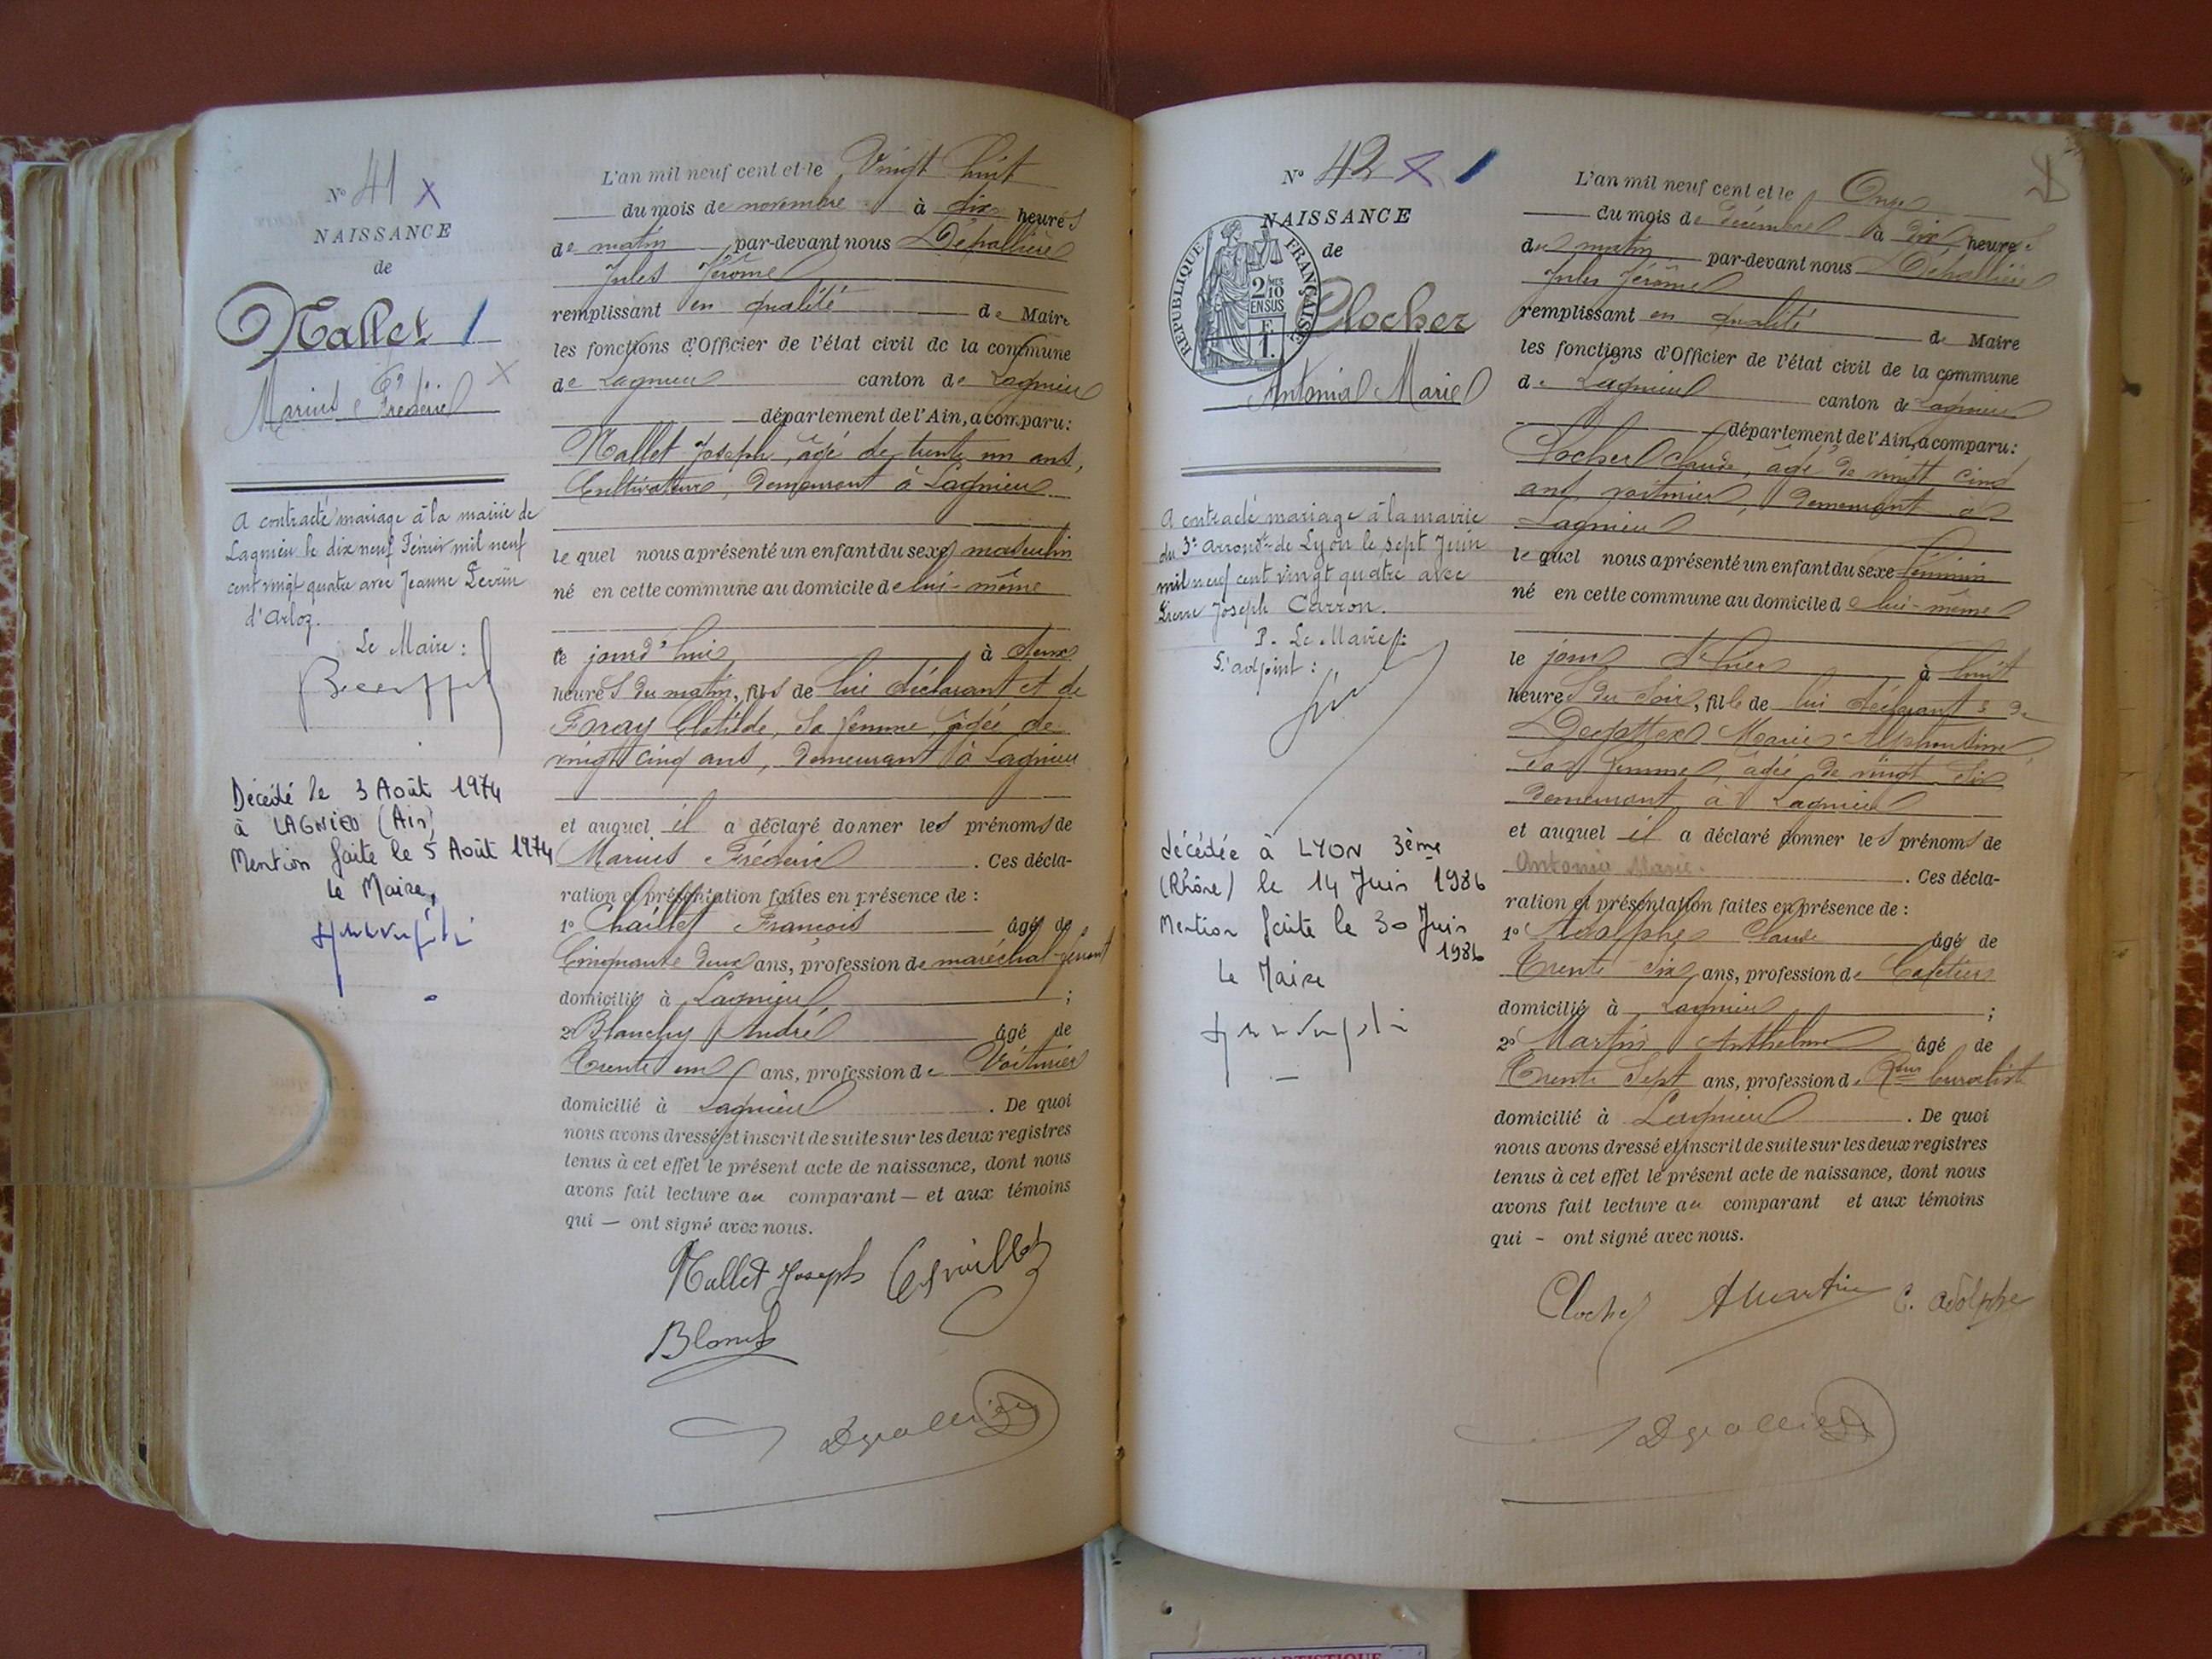 N° 41 X
NAISSANCE
de
Mallet
Marius Frédéric
A contracté mariage à la mairie de
Lagnieu le dix neuf Février mil neuf
cent vingt quatre avec Jeanne
d'Arloz.
Le Maire :
Décédé le 3 Août 1974
à LAGNIEU (Ain)
Mention faite le 5 Août 1974
Le Maire,
L'an mil neuf cent et le Vingt huit
du mois de novembre à dix heures
de matin par-devant nous Dépallière
Jules Jérôme
remplissant en qualité de Maire
les fonctions d'Officier de l'état civil de la commune
de Lagnieu canton de Lagnieu
département de l'Ain, a comparu :
Mallet Joseph, âgé de trente un ans,
Cultivateur, demeurant à Lagnieu
le quel nous a présenté un enfant du sexe masculin
né en cette commune au domicile de lui-même
ce jourd'hui à deux
heures du matin, fils de lui déclarant et de
Clotilde, sa femme, âgée de
vingt cinq ans, demeurant à Lagnieu
et auquel il a déclaré donner les prénoms de
Marius Frédéric . Ces décla-
ration et présentation faites en présence de :
1° Chaillet François âgé de
Cinquante deux ans, profession de maréchal-ferrant
domicilié à Lagnieu ;
2° Blanchy André âgé de
Trente un ans, profession de Voiturier
domicilié à Lagnieu . De quoi
nous avons dressé et inscrit de suite sur les deux registres
tenus à cet effet le présent acte de naissance, dont nous
avons fait lecture au comparant — et aux témoins
qui — ont signé avec nous.
Mallet Joseph Chaillet
N° 42 X
NAISSANCE
de
REPUBLIQUE FRANÇAISE
2 MES
10
EN SUS
Clocher
Antonia Marie
A contracté mariage à la mairie
du 3e arrondt de Lyon le sept Juin
mil neuf cent vingt quatre avec
Pierre Joseph Carron.
P. Le Maire :
S. adjoint :
décédée à LYON 3ème
(Rhône) le 14 Juin 1986
Mention faite le 30 Juin
1986
Le Maire
L'an mil neuf cent et le Onze
du mois de décembre à dix heures
du matin par-devant nous Dépallière
Jules Jérôme
remplissant en qualité de Maire
les fonctions d'Officier de l'état civil de la commune
de Lagnieu canton de Lagnieu
département de l'Ain, a comparu :
Clocher Claude, âgé de vingt cinq
ans, voiturier, demeurant à
Lagnieu
le quel nous a présenté un enfant du sexe féminin
né en cette commune au domicile de lui-même
le jour d'hier à huit
heures du soir, fille de lui déclarant & de
Marie Alphonsine
sa femme, âgée de vingt six
demeurant à Lagnieu
et auquel il a déclaré donner les prénoms de
Antonia Marie. . Ces décla-
ration et présentation faites en présence de :
1° Adolphe Claude âgé de
Trente six ans, profession de Cafetier
domicilié à Lagnieu ;
2° Martin Anthelme âgé de
Trente Sept ans, profession de buraliste
domicilié à Lagnieu . De quoi
nous avons dressé et inscrit de suite sur les deux registres
tenus à cet effet le présent acte de naissance, dont nous
avons fait lecture au comparant et aux témoins
qui - ont signé avec nous.
Clocher A Martin C. Adolphe